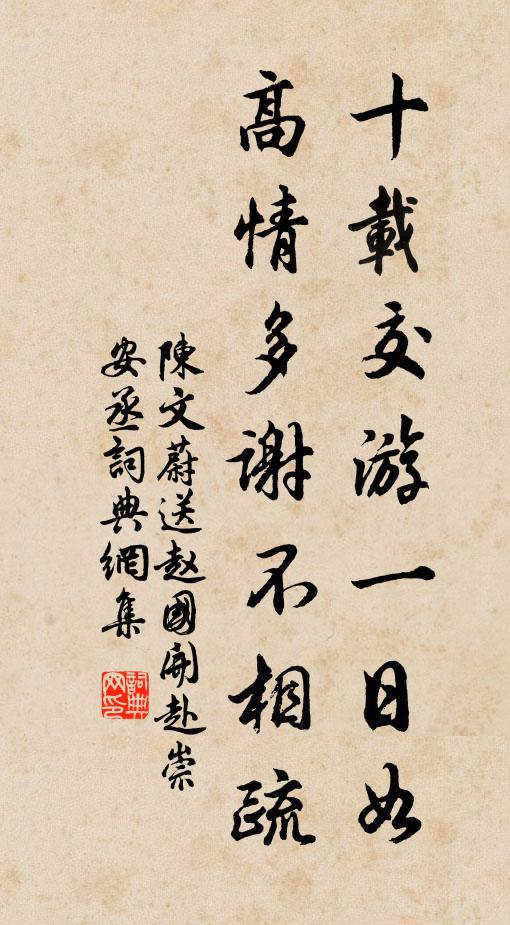 十載交游一日如
高情多謝不相疏
陳文蔚送赵國開赴崇
安丞詞典網集
詞典网印